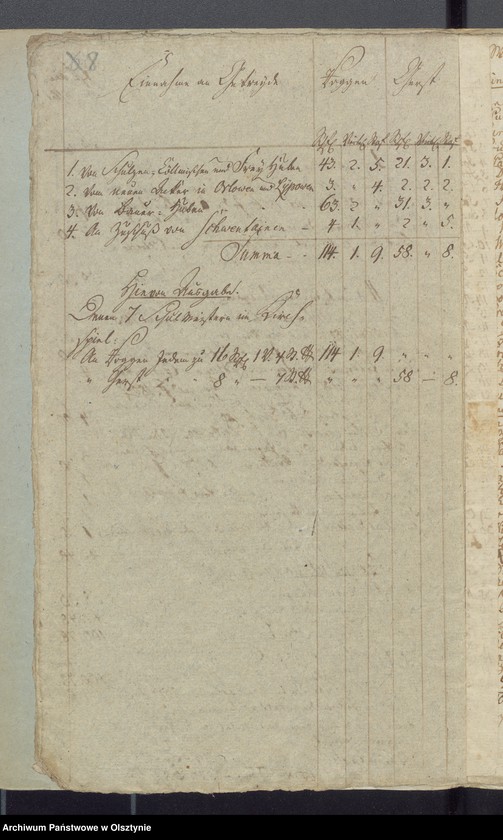 Einnahme an Getreyde Roggen Gerst
Schfl. Viertl. Mtz. Schfl. Viertl. Mtz.
1. Von Schulzen- Cöllmischen und Frey Huben 43. 2. 5. 21. 3. 1.
2. Vom neuen Acker in Orlowen und 3. " 4. 2. 2. 2.
3. Von Bauer- Huben 63. 2 " 31. 3. "
4. An Zuschuß von Schwentainen - 4 1. " 2 " 5.
Summa - - 114 1. 9. 58. " 8.
Hievon Ausgabe.
Denen 7 Schulmeistern im Kirch-
spiel:
An Roggen Jedem zu 16 Schfl. 1 V. 114 1. 9. " " "
" Gerst - - 8 " — " " " 58 — 8.
Archiwum Państwowe w Olsztynie